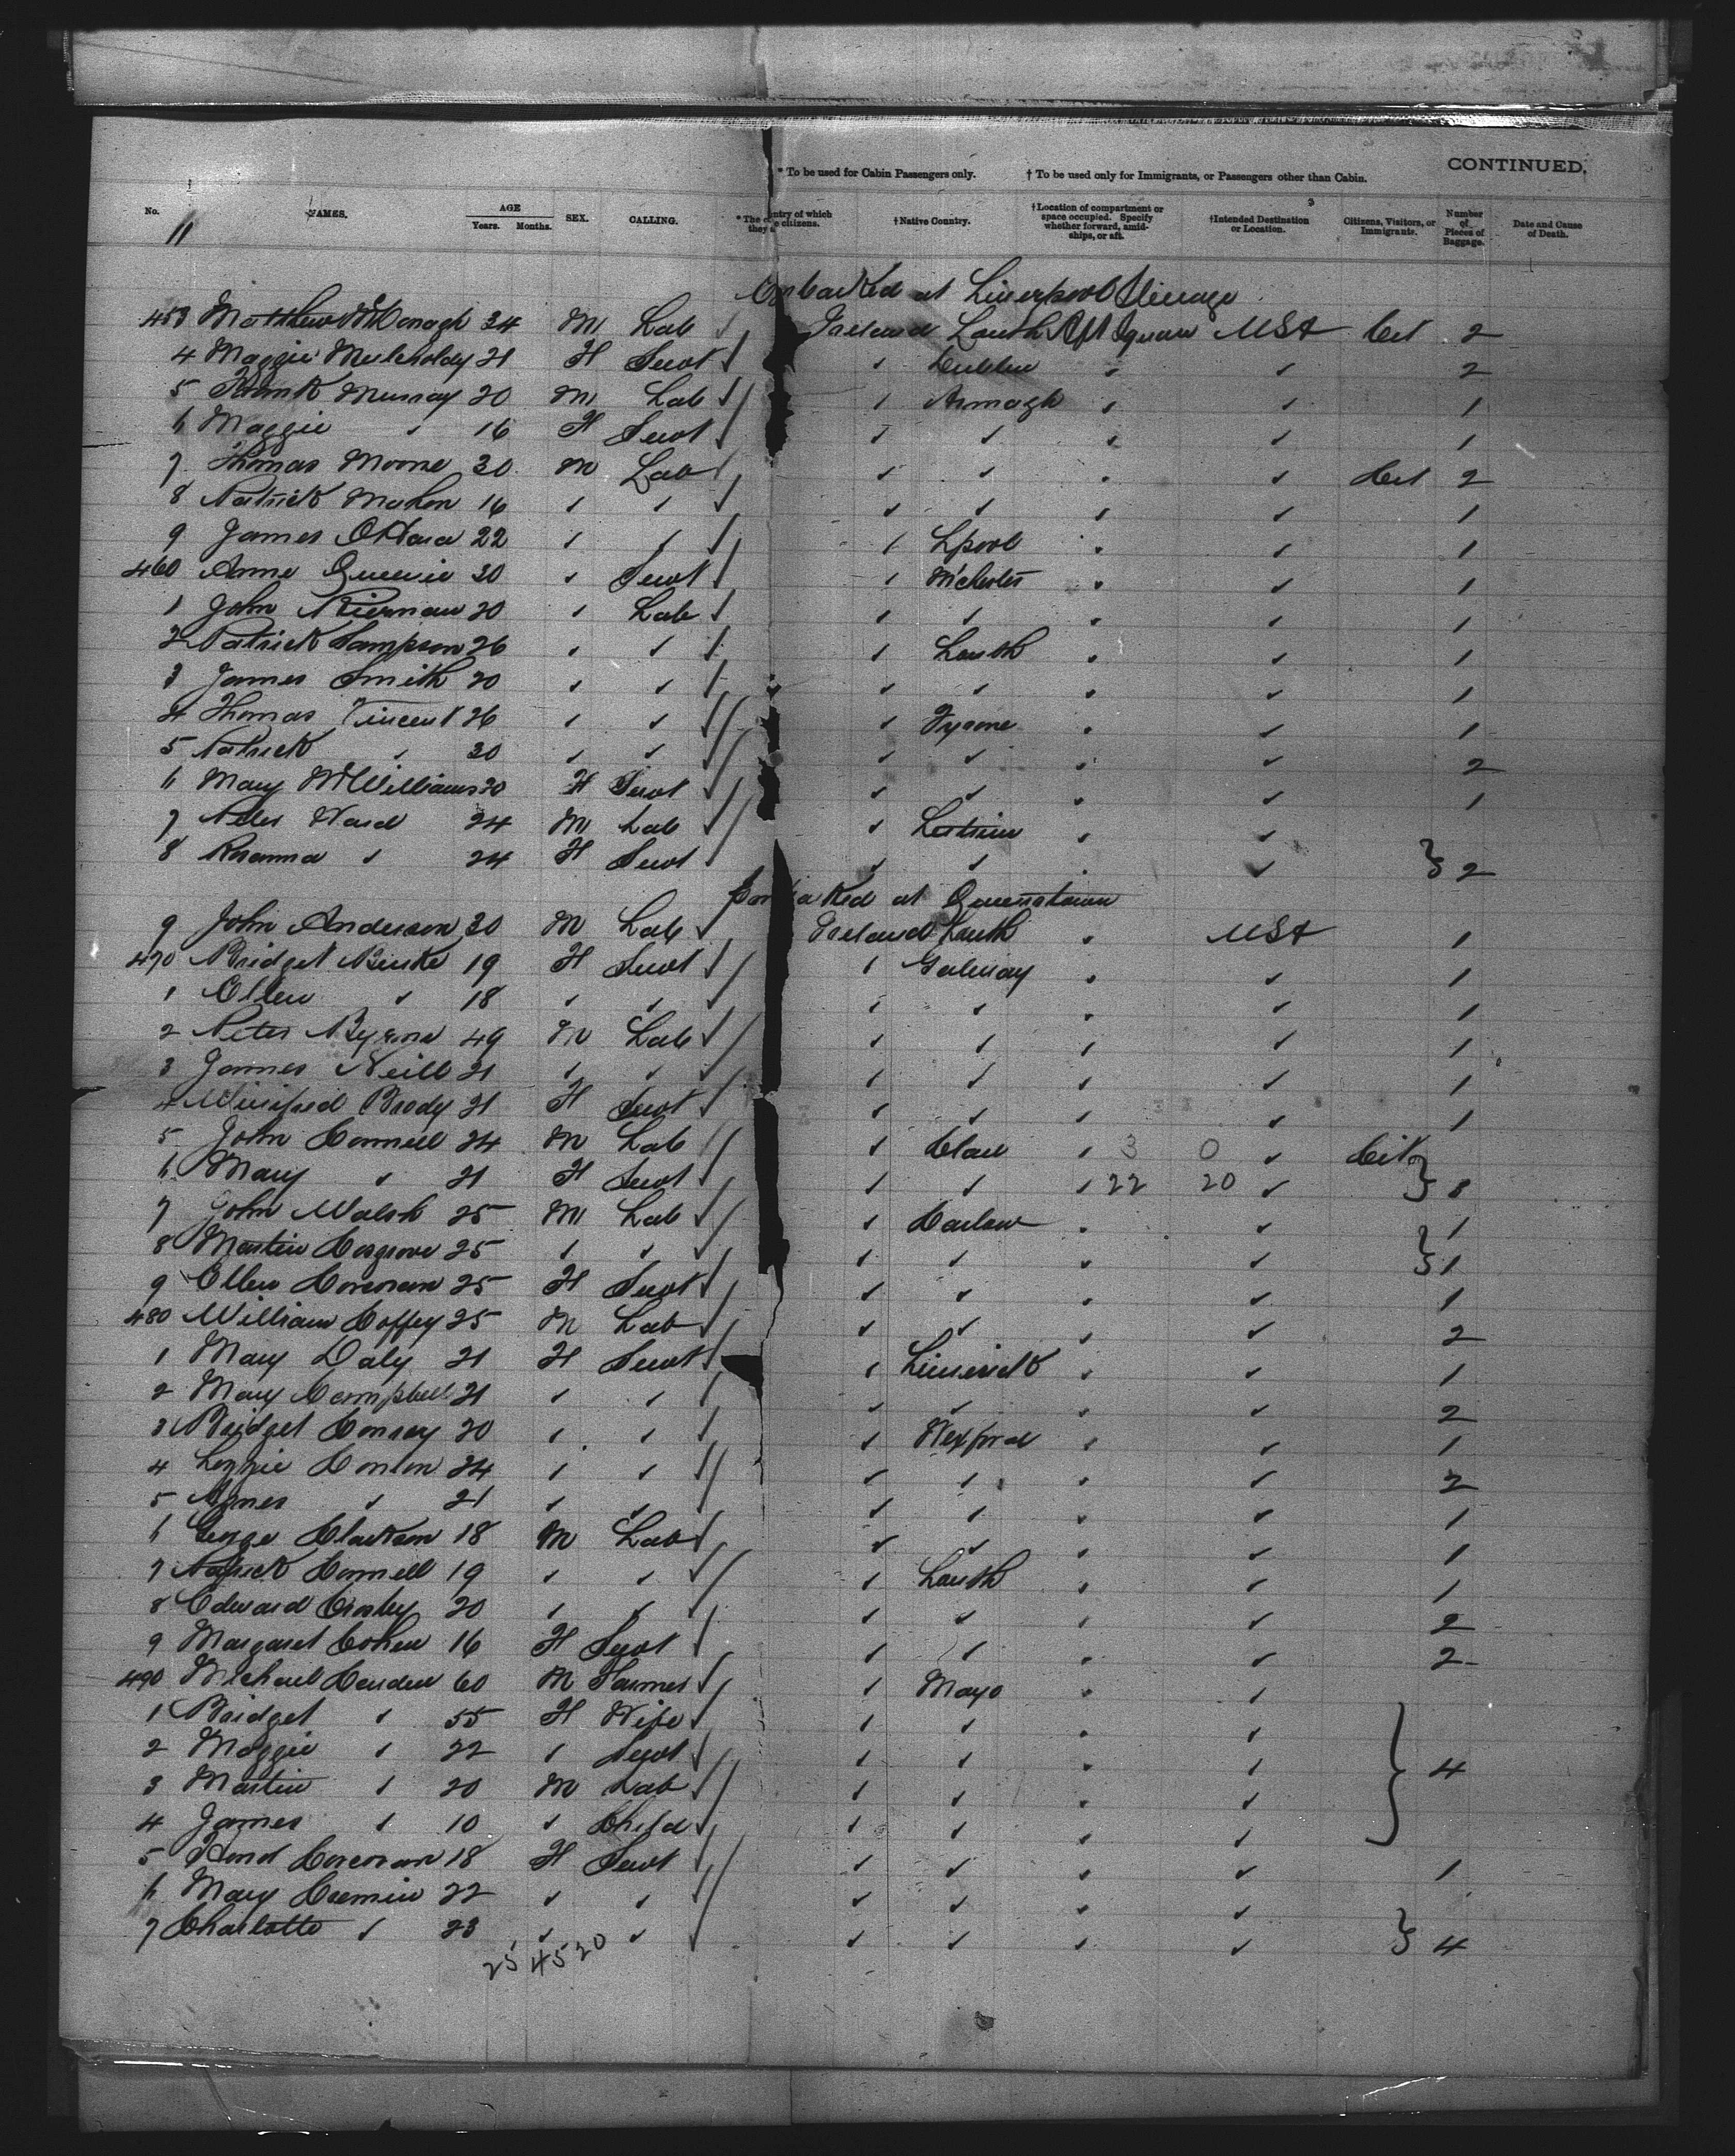 CONTINUED.
* To be used for Cabin Passengers only. † To be used only for Immigrants, or Passengers other than Cabin.
No. NAMES. AGE Years. Months. SEX. CALLING. * The country of which they are citizens. † Native Country. † Location of compartment or space occupied. Specify whether forward, amidships, or aft. † Intended Destination or Location. Citizens, Visitors, or Immigrants. Number of Pieces of Baggage. Date and Cause of Death.
11
Embarked at Liverpool Steerage
453 Matthew McDonagh 34 M Lab Ireland Louth Aft Square USA Cit 2
4 Maggie Mulcholdy 21 F Servt ✓ Dublin ✓ ✓ 2
5 Frank Murray 20 M Lab ✓ Armagh ✓ ✓ 1
6 Maggie ✓ 16 F Servt ✓ ✓ ✓ ✓ 1
7 Thomas Moore 30 M Lab ✓ ✓ ✓ ✓ Cit 2
8 Patrick Mahon 16 ✓ ✓ ✓ ✓ ✓ ✓ 1
9 James OHara 22 ✓ ✓ ✓ Lpool ✓ ✓ 1
460 Anne 30 ✓ Servt ✓ Mchester ✓ ✓ 1
1 John Kiernan 20 ✓ Lab ✓ ✓ ✓ ✓ 1
2 Patrick Sampson 26 ✓ ✓ ✓ Louth ✓ ✓ 1
3 James Smith 20 ✓ ✓ ✓ ✓ ✓ ✓ 1
4 Thomas Vincent 26 ✓ ✓ ✓ Tyrone ✓ ✓ 1
5 Patrick ✓ 30 ✓ ✓ ✓ ✓ ✓ ✓ 2
6 Mary McWilliams 20 F Servt ✓ ✓ ✓ ✓ 1
7 Peter Ward 24 M Lab ✓ Leitrim ✓ ✓
8 Rosanna ✓ 24 F Servt ✓ ✓ ✓ ✓ } 2
Embarked at Queenstown
9 John Anderson 30 M Lab Ireland Louth ✓ USA 1
470 Bridget Burke 19 F Servt ✓ Galway ✓ ✓ 1
1 Ellen ✓ 18 ✓ ✓ ✓ ✓ ✓ ✓ 1
2 Peter Byrne 49 M Lab ✓ ✓ ✓ ✓ 1
3 James Neill 21 ✓ ✓ ✓ ✓ ✓ ✓ 1
4 Winifred Brody 21 F Servt ✓ ✓ ✓ ✓ 1
5 John Connell 24 M Lab ✓ Clare ✓ 3 0 ✓ Cit
6 Mary ✓ 21 F Servt ✓ ✓ ✓ 22 20 ✓ } 8
7 John Walsh 25 M Lab ✓ Carlow ✓ ✓ 1
8 Martin Cosgrove 25 ✓ ✓ ✓ ✓ ✓ ✓ } 1
9 Ellen Corcoran 25 F Servt ✓ ✓ ✓ ✓ 1
480 William Coffey 25 M Lab ✓ ✓ ✓ ✓ 2
1 Mary Daly 21 F Servt ✓ Limerick ✓ ✓ 1
2 Mary Campbell 21 ✓ ✓ ✓ ✓ ✓ ✓ 2
3 Bridget Conroy 20 ✓ ✓ ✓ Wexford ✓ ✓ 1
4 Lizzie Conlon 24 ✓ ✓ ✓ ✓ ✓ ✓ 2
5 Agnes ✓ 21 ✓ ✓ ✓ ✓ ✓ ✓ 1
6 George Clarkson 18 M Lab ✓ ✓ ✓ ✓ 1
7 Patrick Connell 19 ✓ ✓ ✓ Louth ✓ ✓ 1
8 Edward Crosby 20 ✓ ✓ ✓ ✓ ✓ ✓ 2
9 Margaret Cohen 16 F Servt ✓ ✓ ✓ ✓ 2
490 Michael Caulden 60 M Farmer ✓ Mayo ✓ ✓
1 Bridget ✓ 55 F Wife ✓ ✓ ✓ ✓
2 Maggie ✓ 22 ✓ Servt ✓ ✓ ✓ ✓ } 4
3 Martin ✓ 20 M Lab ✓ ✓ ✓ ✓
4 James ✓ 10 ✓ Child ✓ ✓ ✓ ✓
5 Hond Corcoran 18 F Servt ✓ ✓ ✓ ✓ 1
6 Mary Cremin 22 ✓ ✓ ✓ ✓ ✓ ✓
7 Charlotte ✓ 23 ✓ ✓ ✓ ✓ ✓ ✓ } 4
25 45 20